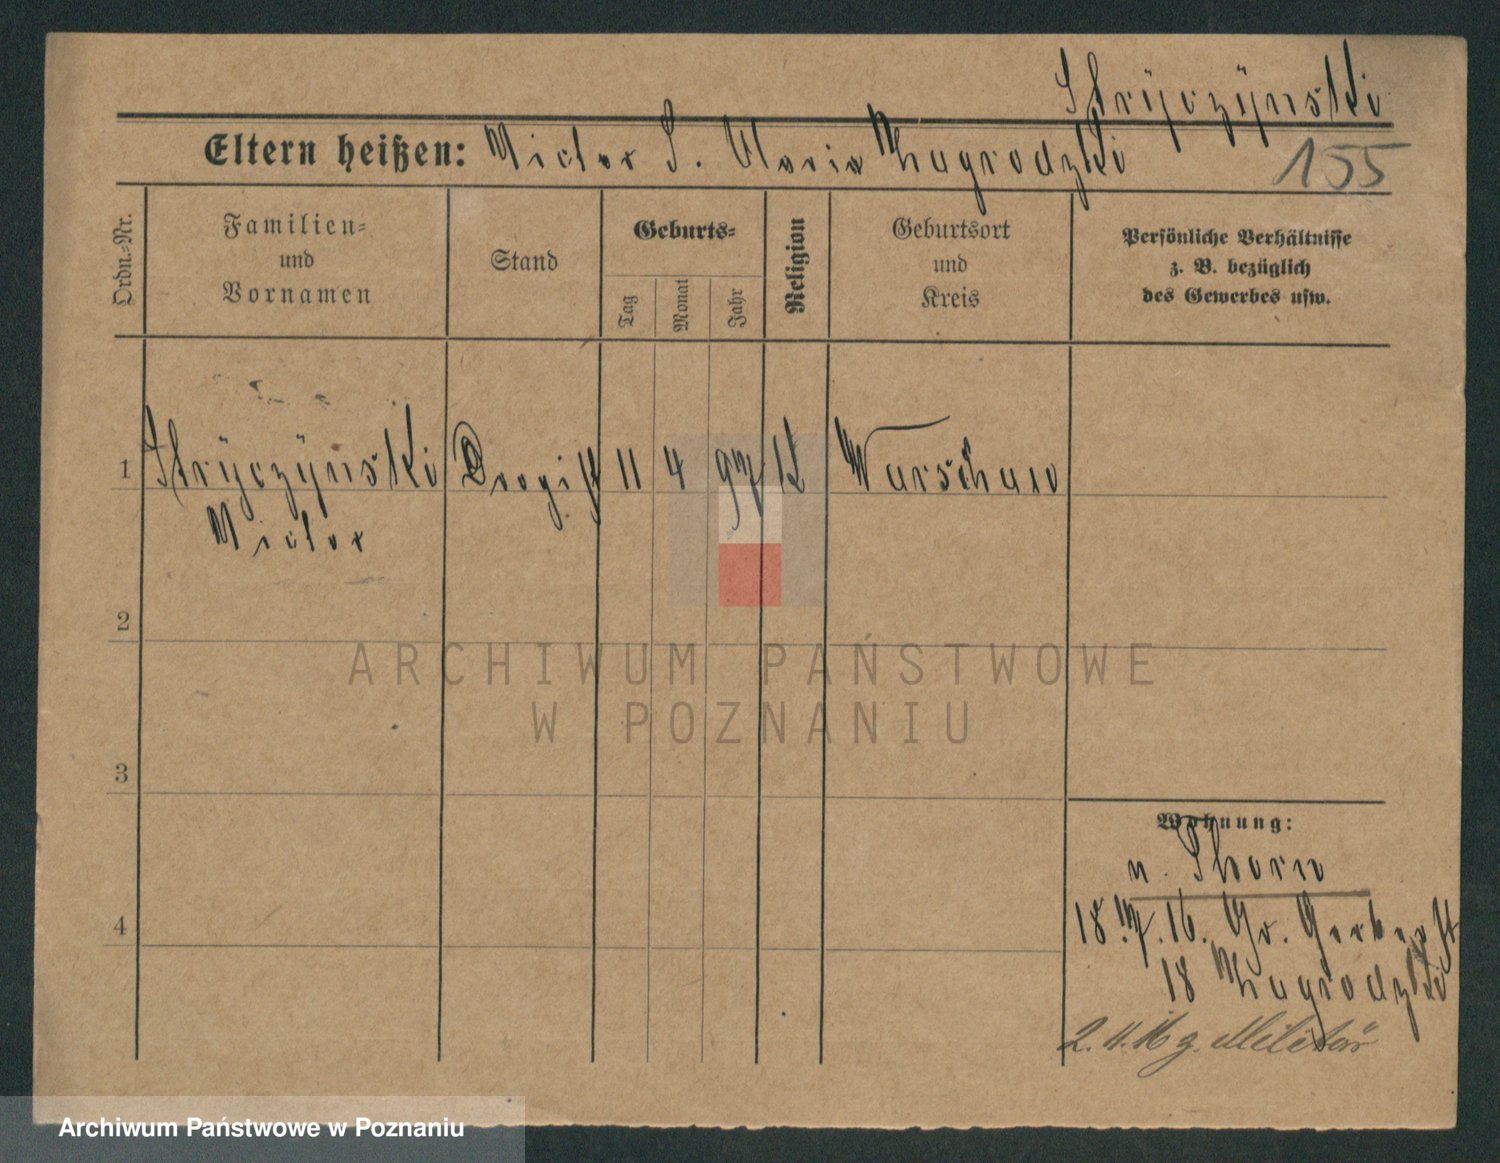 Strÿczÿnski
Eltern heißen: Victor S. Maria Zagrodzki
155
Ordn.-Nr.
Familien-
und
Vornamen
Stand
Geburts-
Tag
Monat
Jahr
Religion
Geburtsort
und
Kreis
Persönliche Verhältnisse
z. B. bezüglich
des Gewerbes usw.
1 Strÿczÿnski Drogist 11 4 97 K Warschau
Victor
2
3
4
ARCHIWUM PAŃSTWOWE
W POZNANIU
Wohnung:
n. Thorn
18. 7. 16. Gr. Gerberst
18 Zagrodzki
2. 11. 16 z. Militär
Archiwum Państwowe w Poznaniu